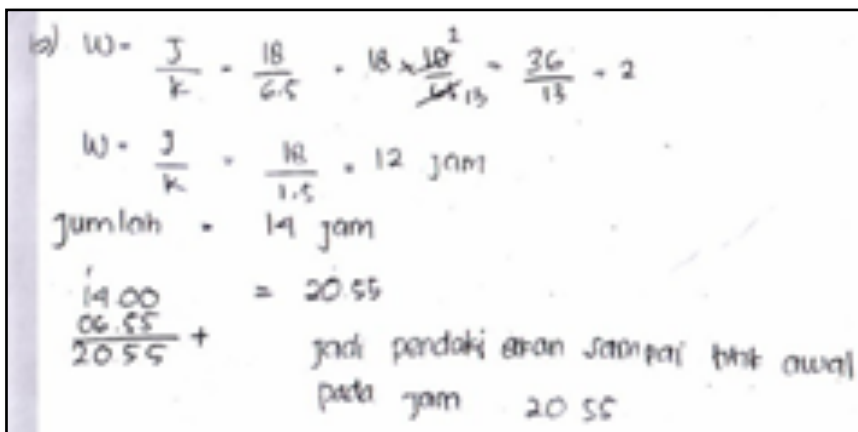 b) W = J/k = 18/6.5 = 18 × 10²/65 13 = 36/13 = 2
W = J/k = 18/1.5 = 12 jam
Jumlah = 14 jam
14.00 = 20.55
06.55 +
20 55
jadi pendaki akan sampai titik awal
pada jam 20 55